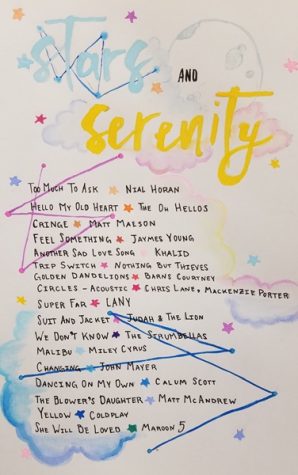 stars
AND
serenity
TOO MUCH TO ASK NIAL HORAN
HELLO MY OLD HEART THE OH HELLOS
CRINGE MATT MAESON
FEEL SOMETHING JAYMES YOUNG
ANOTHER SAD LOVE SONG KHALID
TRIP SWITCH NOTHING BUT THIEVES
GOLDEN DANDELIONS BARNS COURTNEY
CIRCLES - ACOUSTIC CHRIS LANE, MACKENZIE PORTER
SUPER FAR LANY
SUIT AND JACKET JUDAH & THE LION
WE DON'T KNOW THE STRUMBELLAS
MALIBU MILEY CYRUS
CHANGING JOHN MAYER
DANCING ON MY OWN CALUM SCOTT
THE BLOWER'S DAUGHTER MATT MCANDREW
YELLOW COLDPLAY
SHE WILL BE LOVED MAROON 5